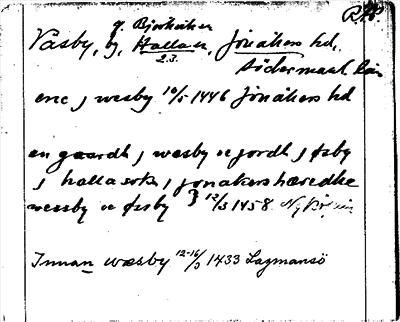 g. Björkviks
Vasby, by, Halla sn, Jönåkers hd,
23.
Södermanl. län
enc j wesby 10/5 1446 Jönåkers hd
en gaardh j wesby oc jordh j Øsby
j halla sokn j jonakers hæredhe
wesby oc Øsby } 12/3 1458
Innan wæsby 12-16/3 1433 Lagmansö